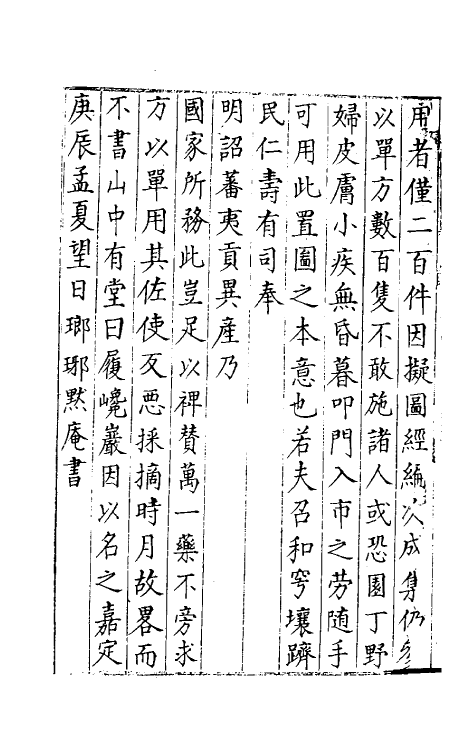 用者僅二百件因擬圖經編次成集仍參
以單方數百隻不敢施諸人或恐園丁野
婦皮膚小疾無昏暮叩門入市之劳随手
可用此置圖之本意也若夫召和穹壤躋
民仁壽有司奉
明詔蕃夷貢異産乃
國家所務此豈足以裨賛萬一藥不旁求
方以單用其佐使反惡採摘時月故畧而
不書山中有堂曰履巉巖因以名之嘉定
庚辰孟夏望日瑯琊默庵書